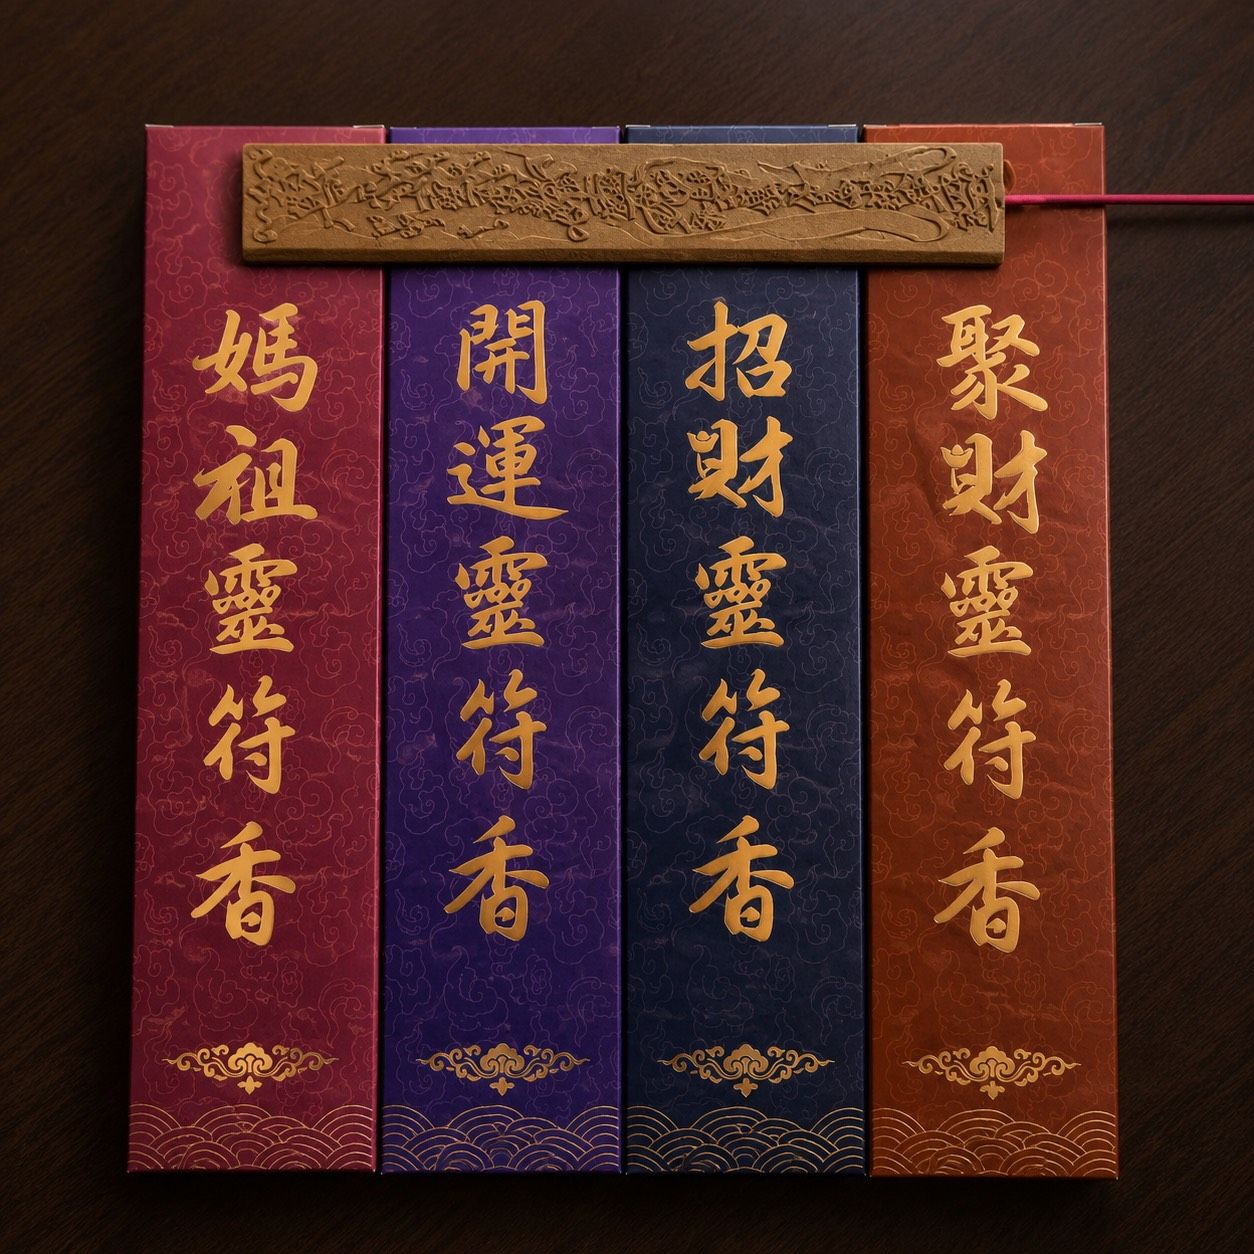 媽祖靈符香
開運靈符香
招財靈符香
聚財靈符香